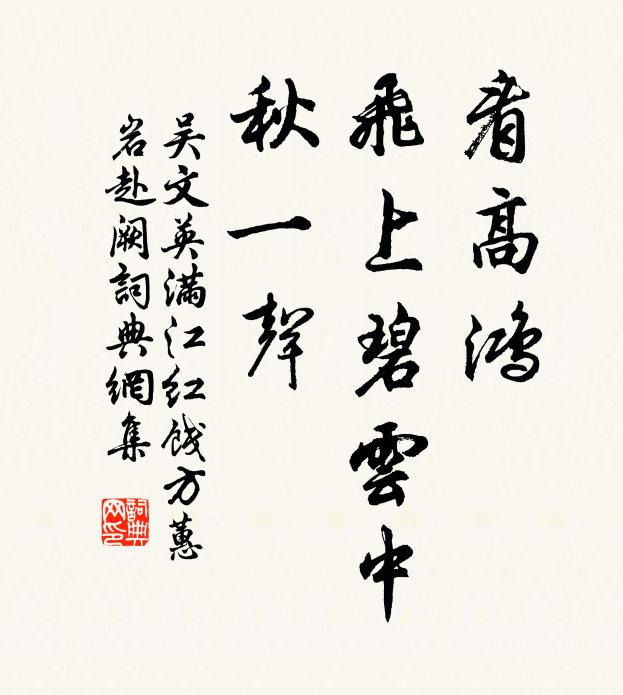 看高鴻
飛上碧雲中
秋一聲
吴文英满江红餞方蕙
岩赴阙詞典網集
詞典
网印